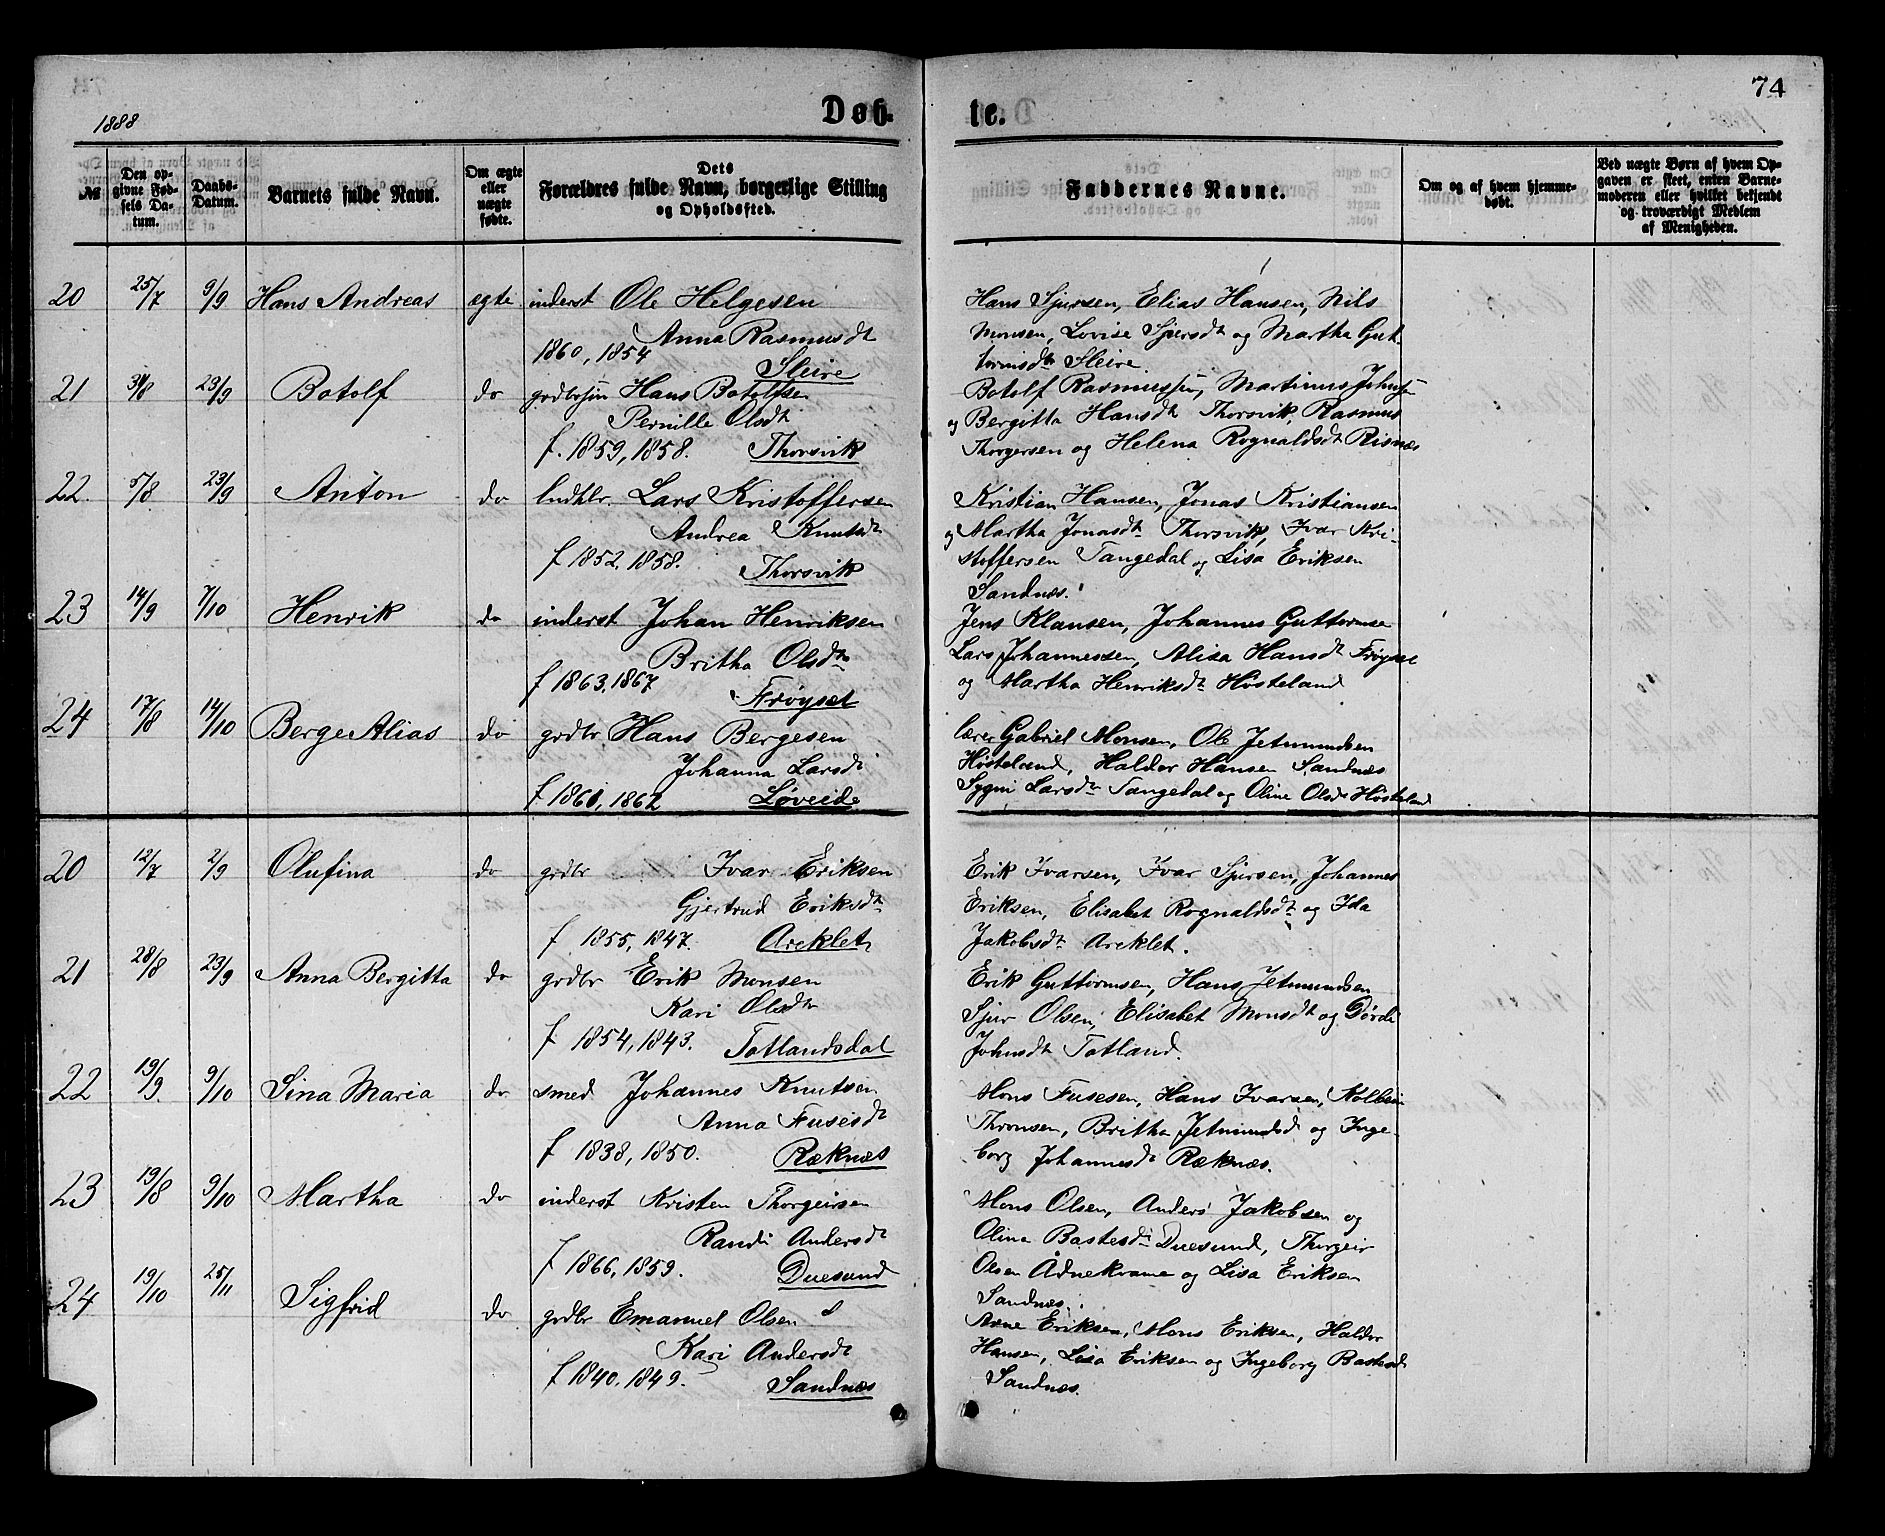 1888
Døb-
te.
74
№
Den op-
givne Fød-
sels Da-
tum.
Daabs-
Datum.
Barnets fulde Navn.
Om ægte
eller
uægte
fødte.
Dets
Forældres fulde Navn, borgerlige Stilling
og Opholdssted.
Faddernes Navne.
Om og af hvem hjemme-
døbt.
Ved uægte Børn af hvem Op-
gaven er skeet, enten Barne-
moderen eller hvilket bekjendt
og troværdigt Medlem
af Menigheden.
20 25/7 9/9 Hans Andreas ægte inderst Ole Helgesen
Anna Rasmusdt
1860, 1854
Sleire
Hans Sjursen, Elias Hansen, Nils
Monsen, Lovise Sjursdt og Martha Gut-
tormsdt Sleire.
21 31/8 23/9 Botolf do grdbrsøn Hans Botolfsen
Pernille Olsdt
f. 1859, 1858. Thorsvik
Botolf Rasmussen, Martinus Johnsen
og Bergitta Hansdt Thorsvik, Rasmus
Thorgersen og Helena Rognaldsdt Risnæs
22. 5/8 23/9 Anton do lndhlr. Lars Kristoffersen
Andrea Knutsdt
f 1852, 1858. Thorsvik
Kristian Hansen, Jonas Kristiansen
og Martha Jonasdt Thorsvik, Ivar Kri-
stoffersen Tangedal og Lisa Eriksen
Sandnæs.
23 14/9 7/10 Henrik do inderst Johan Henriksen
Britha Olsdtr
f 1863, 1867
Frøyset
Jens Klausen, Johannes Guttormsen
Lars Johannessen, Alisa Hansdt Frøyset
og Martha Henriksdt Høsteland
24 17/8 14/10 Berge Alias do grdbr Hans Bergesen
Johanna Larsdt
f 1861, 1862 Løveide
lærer Gabriel Monsen, Ole Jetmundsen
Høsteland, Haldor Hansen Sandnæs
Sygni Larsdtr Tangedal og Oline Olsdt Høsteland
20 12/7 2/9 Olufina do grdbr Ivar Eriksen
Gjertrud Eriksdtr
f 1855, 1847. Areklet
Erik Ivarsen, Ivar Sjursen, Johannes
Eriksen, Elisabet Rognaldsdt og Ida
Jakobsdt Areklet.
21 28/8 23/9 Anna Bergitta do grdbr Erik Monsen
Kari Olsdtr
f 1854, 1843. Totlandsdal
Erik Guttormsen, Hans Jetmundsen
Sjur Olsen, Elisabet Monsdt og Gørdi
Johnsdt Totland.
22 19/9. 9/10 Sina Maria do smed Johannes Knutsen
Anna Fusesdt
f 1838, 1850. Ræknæs
Mons Fusesen, Hans Ivarsen, Kolbein
Thronsen, Britha Jetmundsd og Inge-
borg Johannesdt Ræknæs.
23 19/8 9/10 Martha do inderst Kristen Thorgeirsen
Randi Andersdt
f 1866, 1859. Duesund
Mons Olsen, Anders Jakobsen og
Olina Bastesdt Duesund, Thorgeir
Olsen Ådnekvame og Lisa Eriksen
Sandnæs.
24 19/10 25/11 Sigfrid do grdbr Emanuel Olsen
Kari Andersdt
f 1840. 1849. Sandnæs
Arne Eriksen, Mons Eriksen, Haldor
Hansen, Lisa Eriksen og Ingeborg Bastesdt
Sandnæs.